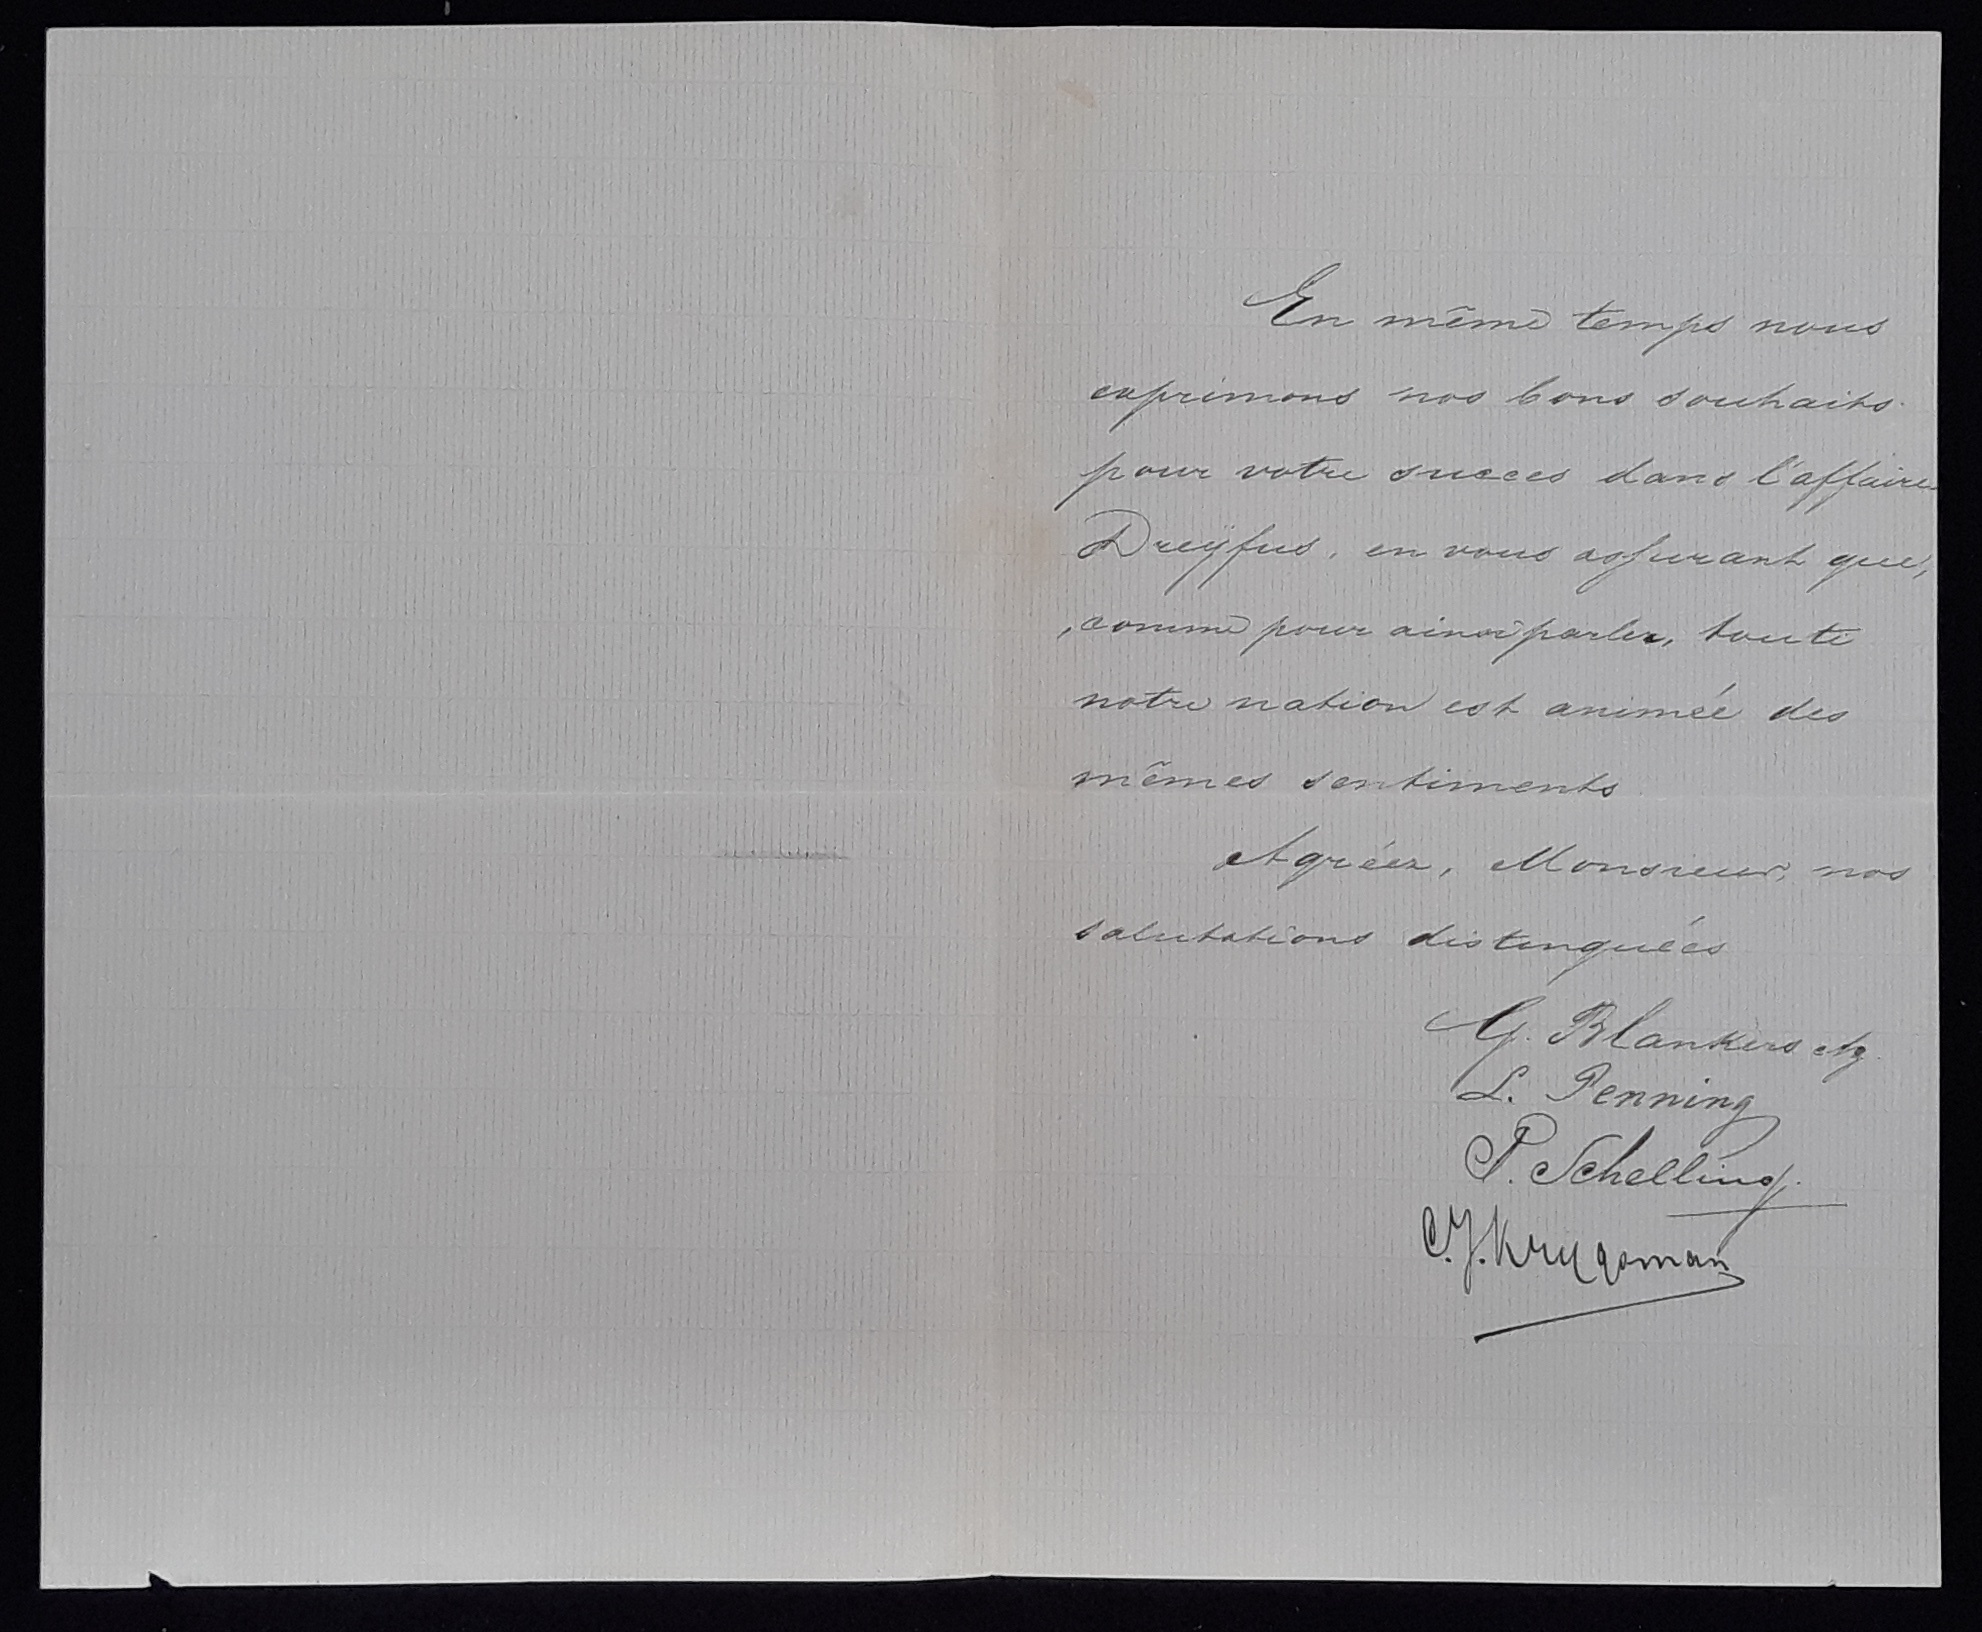 En même temps nous
exprimons nos bons souhaits
pour votre succes dans l'affaire
Dreÿfus, en vous assurant que,
, comme pour ainsi parler, toute
notre nation est animée des
mêmes sentiments
Agréez, Monsieur, nos
salutations distinguées
G. Blankers Az.
L. Penning
P. Schelling.
C.J. Kruysman